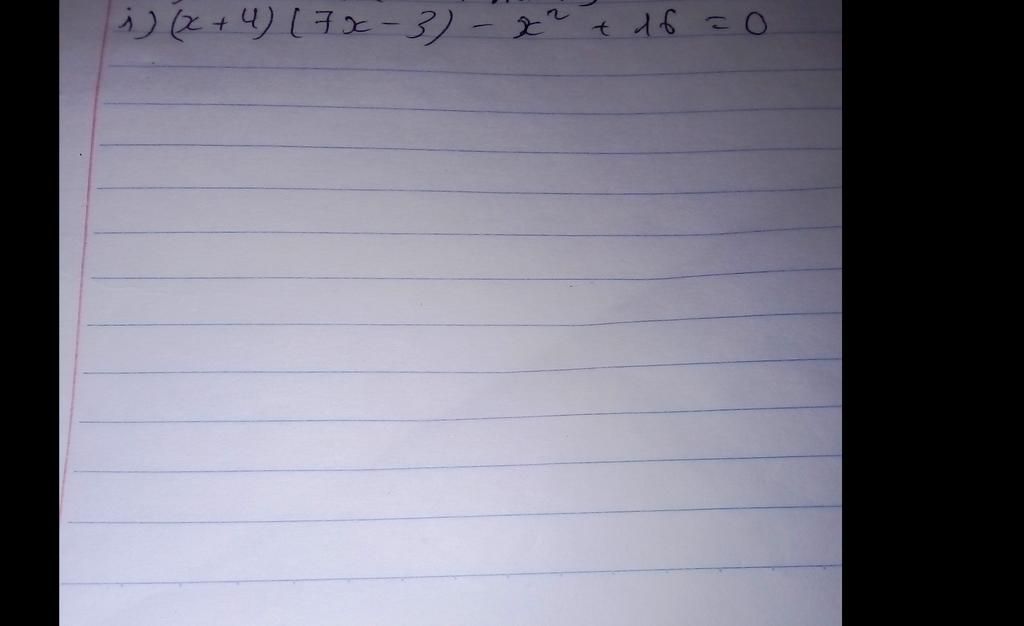 i) (x + 4) (7x - 3) - x² + 16 = 0